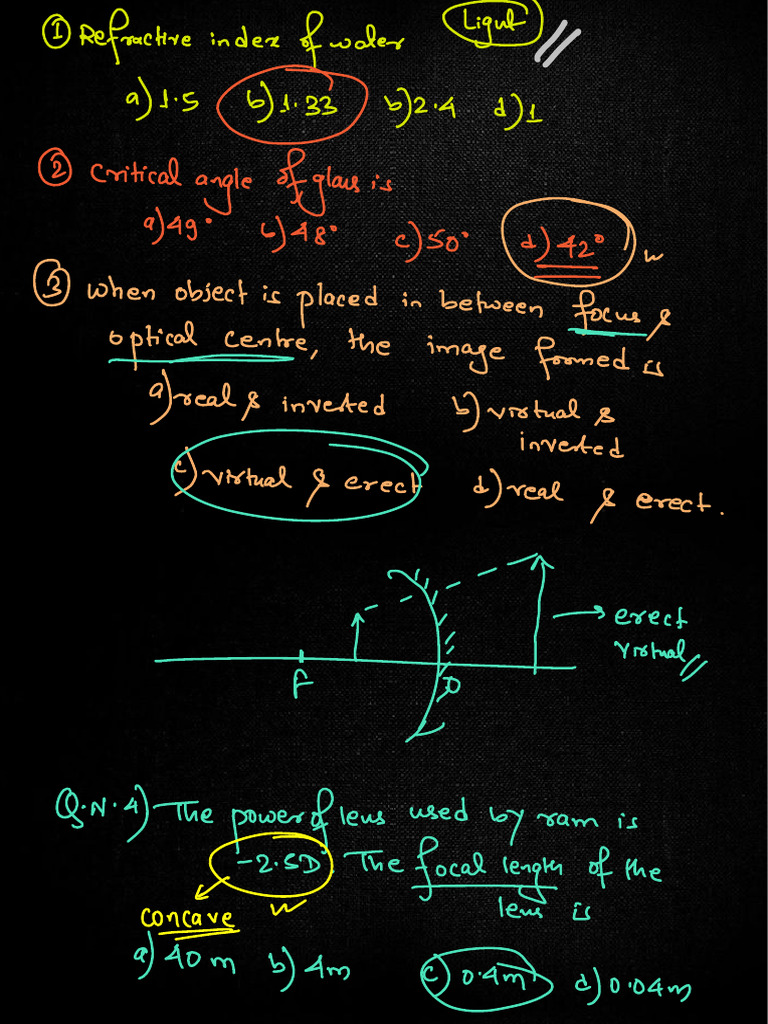 ① Refractive index of water Light
a) 1.5 b) 1.33 b) 2.4 d) 1
② Critical angle of glass is
a) 49° b) 48° c) 50° d) 42°
③ when object is placed in between focus &
optical centre, the image formed is
a) real & inverted b) virtual &
inverted
c) virtual & erect d) real & erect.
erect
virtual
F O
Q.N.4) The power of lens used by ram is
-2.5D. The focal length of the
lens is
concave
a) 40m b) 4m c) 0.4m d) 0.04m